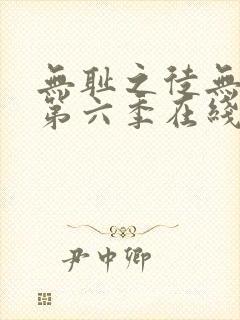 無耻之徒無
第六季在綫
尹中卿